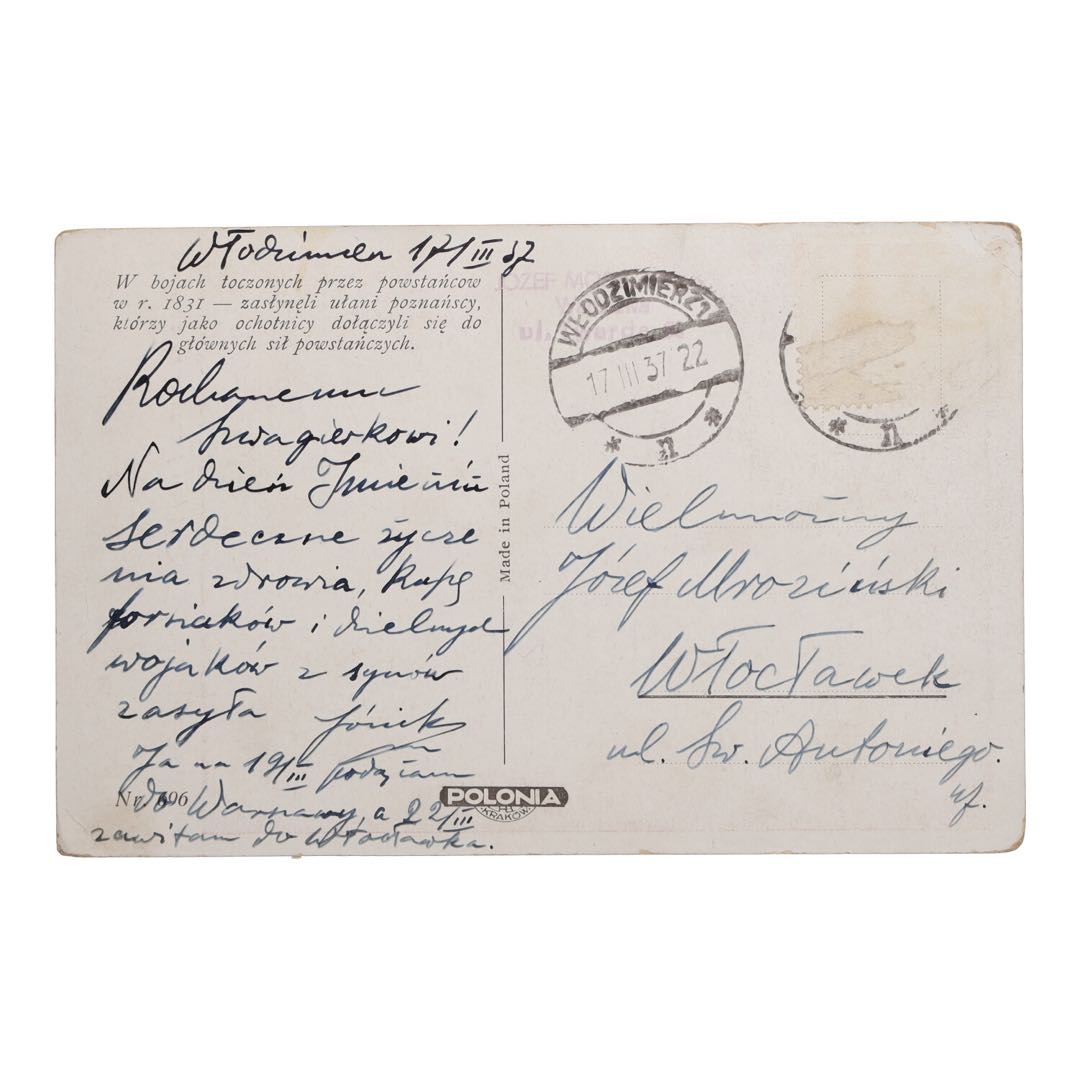 Włodzimierz 17/III 37
W bojach toczonych przez powstańców
w r. 1831 — zasłynęli ułani poznańscy,
którzy jako ochotnicy dołączyli się do
głównych sił powstańczych.
Kochanemu
Szwagierkowi!
Na dzień Imienin
serdeczne życze
nia zdrowia, kupę
forsiaków i dzielnych
wojaków z synów
zasyła Józik
Ja na 19/III podążam
do Warszawy, a 22/III
zawitam do Włocławka.
Nr. 696
POLONIA
KRAKÓW
Made in Poland
JÓZEF
WŁODZIMIERZ 1
17 III 37 22
* n *
* n *
Wielmożny
Józef Mroziński
Włocławek
ul. Św. Antoniego.